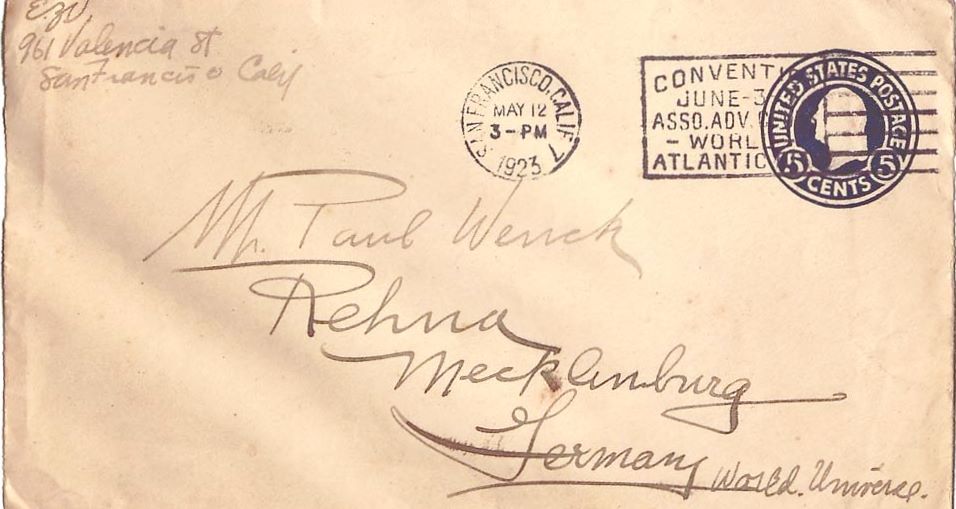 961 Valencia st
San Francisco Calif
SAN FRANCISCO, CALIF. 7
MAY 12
3-PM
1923
CONVENTI
JUNE-3
ASSO. ADV.
- WORL
ATLANTIC
UNITED STATES POSTAGE
5 CENTS 5
Mr. Paul Wenck
Rehna
Mecklenburg
Germany World. Universe.